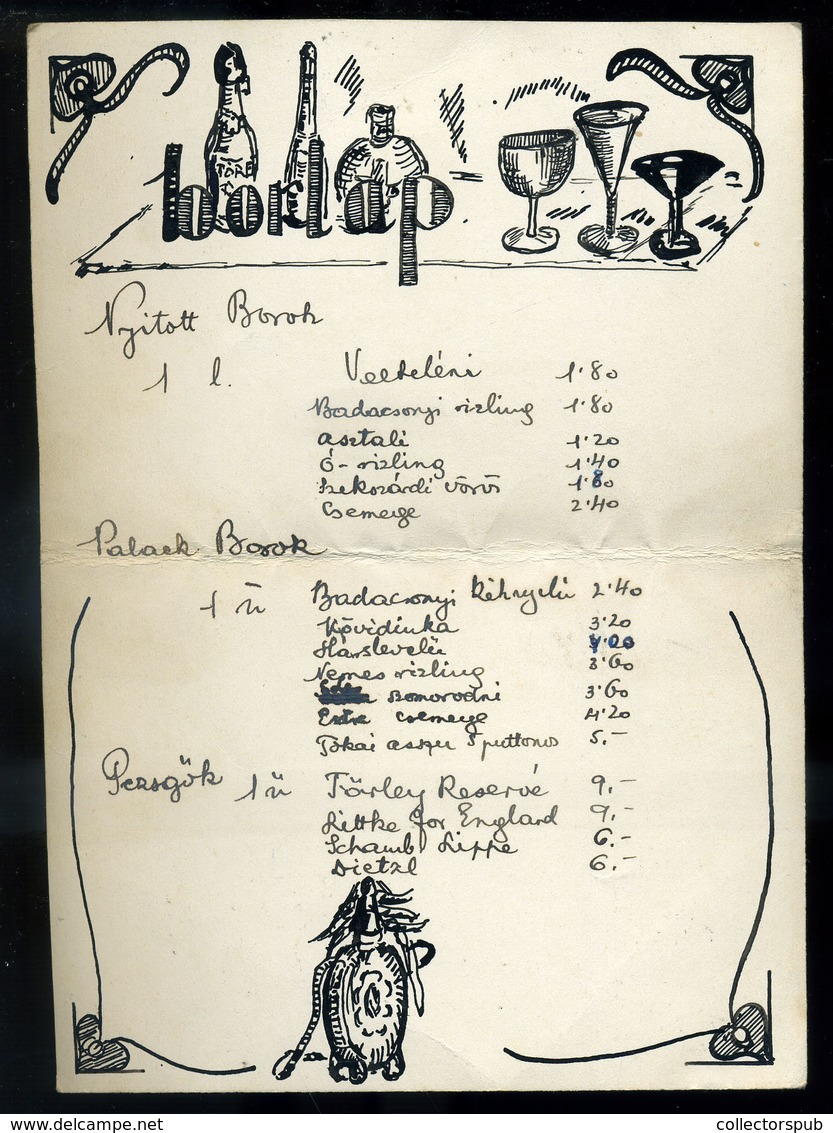 TÖRL
borlap
Nyitott Borok
1 l. Velteléni 1·80
Badacsonyi rizling 1·80
asztali 1·20
Ó-rizling 1·40
Szekszárdi vörös 1·80
Csemege 2·40
Palack Borok
1 ü Badacsonyi kéknyelü 2·40
Kövidinka 3·20
Hárslevelü
Nemes rizling 3·60
szomorodni 3·60
Extra csemege 4·20
Tokai asszu 5 puttonos 5.-
Pezsgők 1 ü Törley Reservé 9.-
Littke for England 9.-
Schaumb Lippe 6.-
Dietzl 6.-
collectorspub